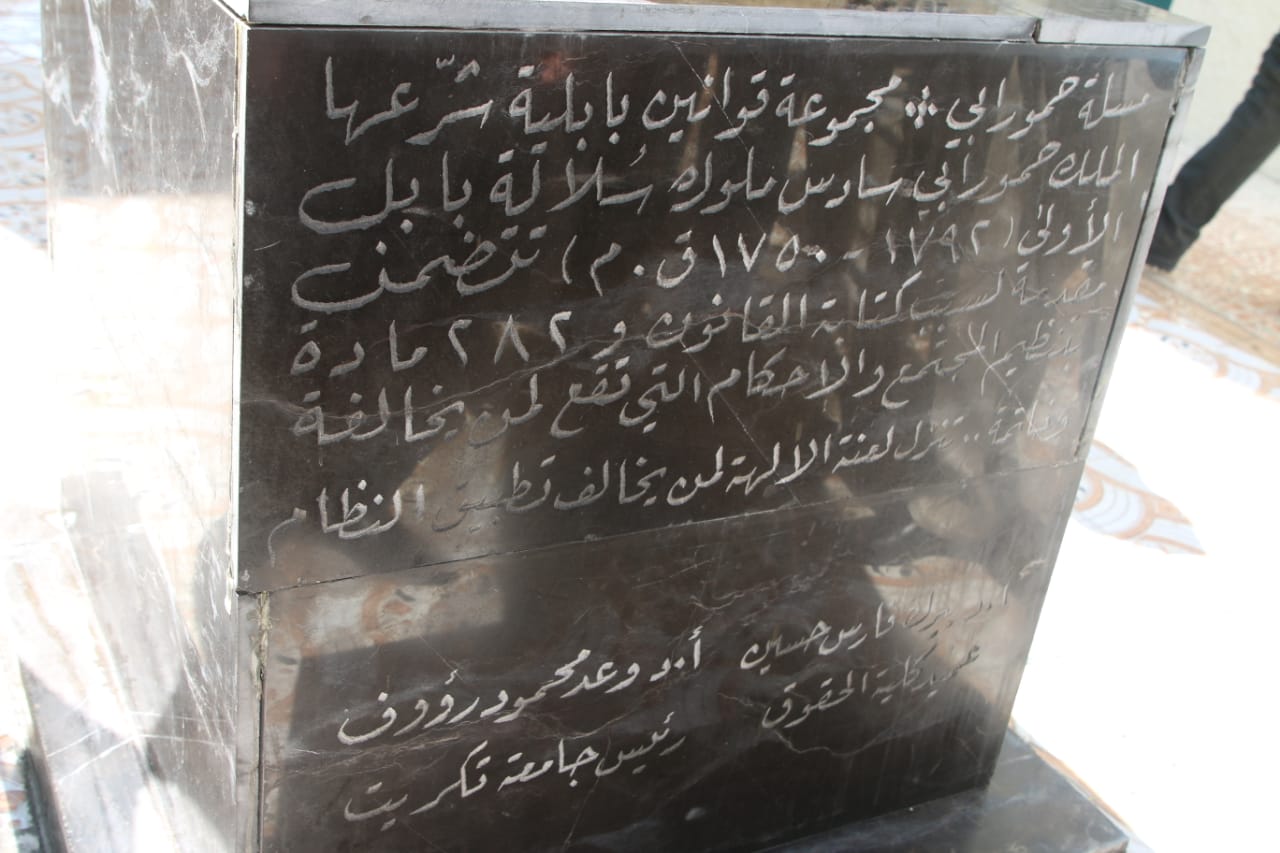 مسلة حمورابي ܀ مجموعة قوانين بابلية شرّعها
الملك حمورابي سادس ملوك سُلالة بابل
الأولى (١٧٩٢ - ١٧٥٠ ق.م) تتضمن
مقدمة لسبب كتابة القانون و ٢٨٢ مادة
بتنظيم المجتمع والاحكام التي تقع لمن يخالفة
وخاتمة .. تنزل لعنة الالهة لمن يخالف تطبيق النظام
فارس حسين
عميد كلية الحقوق
أ.د وعد محمود رؤوف
رئيس جامعة تكريت